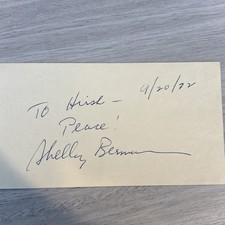 4/20/72
To Hirsh –
Peace!
Shelley Berman